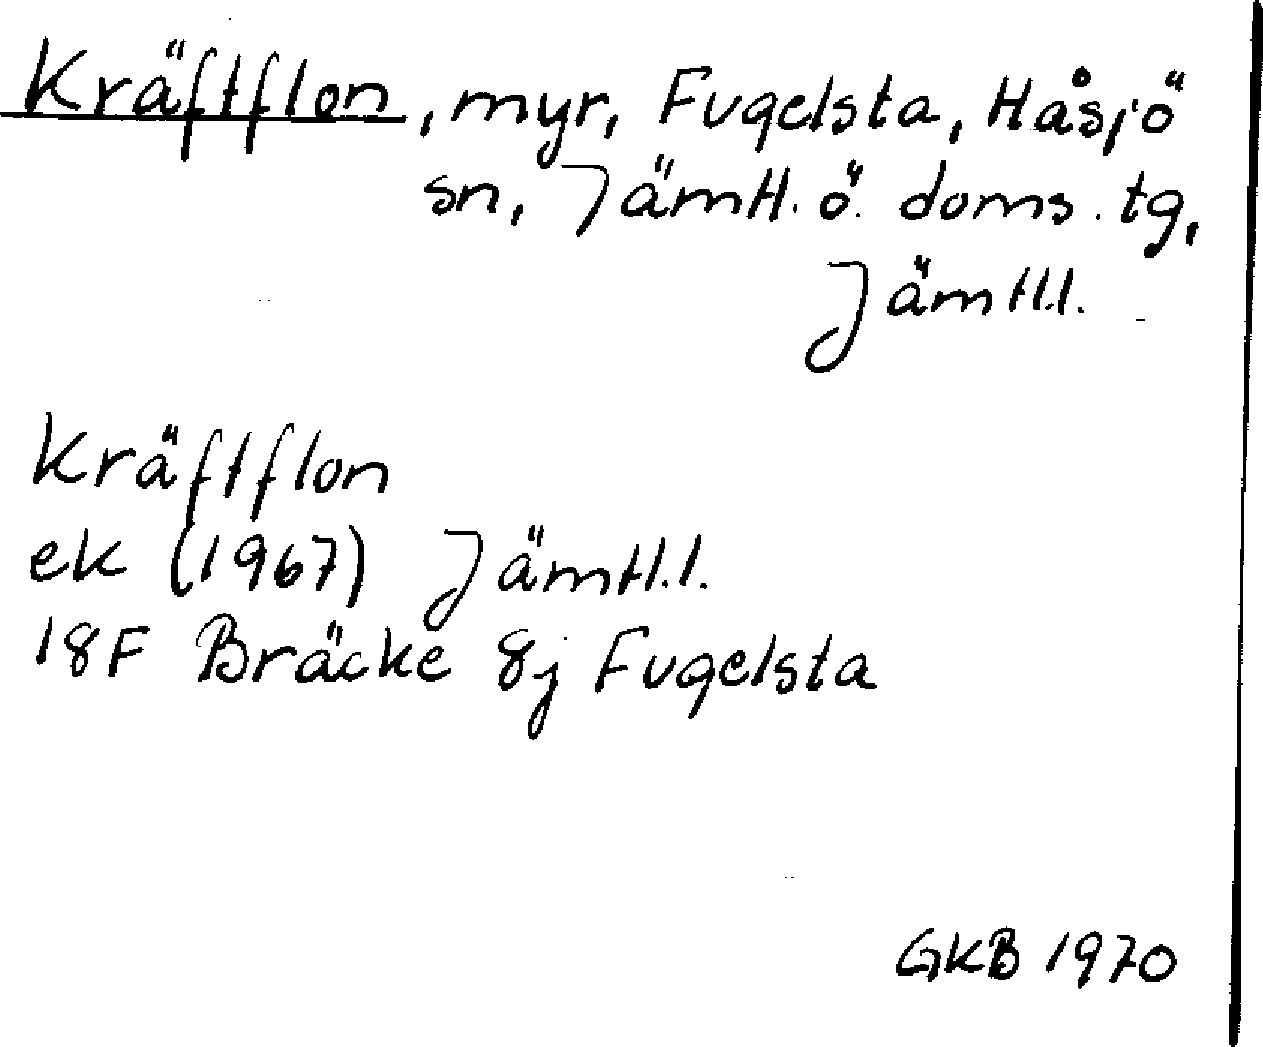 Kräftflon, myr, Fugelsta, Håsjö
sn, Jämtl. ö. doms. tg,
Jämtl.l.
Kräftflon
ek (1967) Jämtl.l.
18F Bräcke 8j Fugelsta
GKB 1970